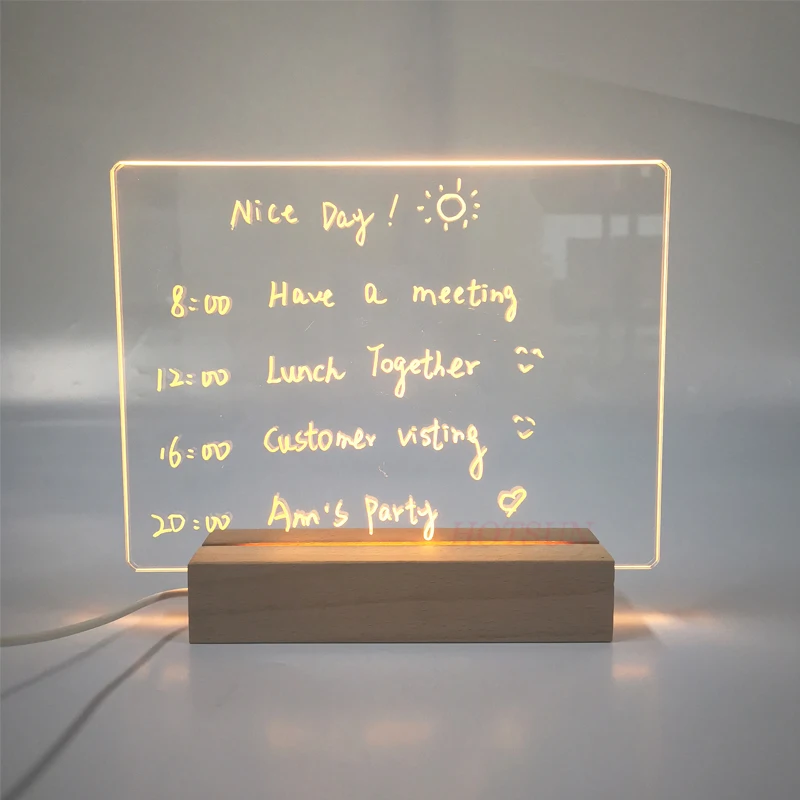 Nice Day!
8:00 Have a meeting
12:00 Lunch Together
16:00 Customer visting
20:00 Ann's party
HOTSUN